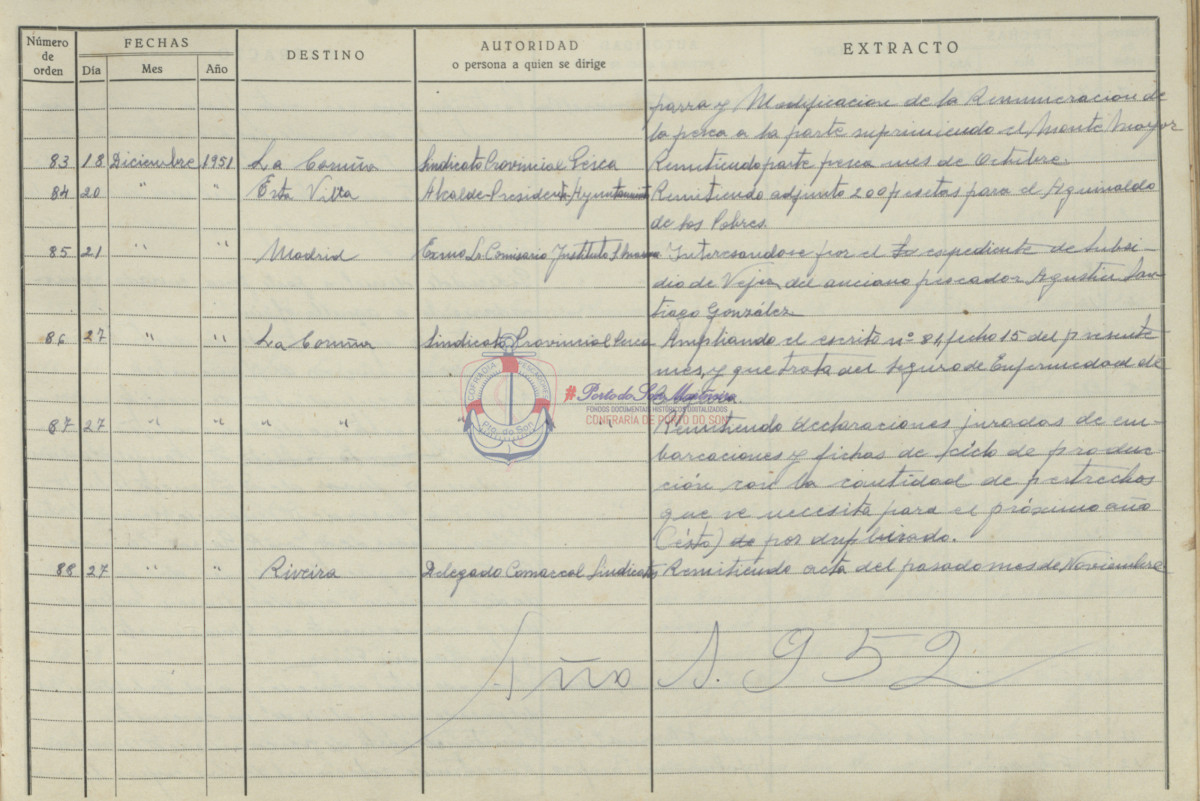 Número de orden
FECHAS
Día
Mes
Año
DESTINO
AUTORIDAD
o persona a quien se dirige
EXTRACTO
parra y Modificacion de la Remuneracion de
la pesca a la parte suprimiendo el Monte Mayor
83 18 Diciembre 1951 La Coruña Sindicato Provincial Pesca Remitiendo parte pesca mes de Octubre
84 20 " " Esta Villa Alcalde-Presidente Ayuntamiento Remitiendo adjunto 200 pesetas para el Aguinaldo
de los Pobres.
85 21 " " Madrid Exmo Sr Comisario Instituto Interesandose por el expediente de Subsi-
dio de Vejez del anciano pescador Agustin San-
tiago González
86 27 " " La Coruña Sindicato Provincial Pesca Ampliando el escrito nº 81 fecha 15 del presente
mes, y que trata del Seguro de Enfermedad de
87 27 " " " " " Remitiendo declaraciones juradas de em-
barcaciones y fichas de ciclo de produc-
ción con la cantidad de pertrechos
que se necesita para el próximo año
(ésto) de por duplicado.
88 27 " " Riveira Delegado Comarcal Sindicatos Remitiendo acta del pasado mes de Noviembre
Año 1.952.
COFRADIA PESCADORES
Pto. do Son
#Porto do Son
FONDOS DOCUMENTAIS HISTÓRICOS DIXITALIZADOS
CONFRARÍA DE PORTO DO SON